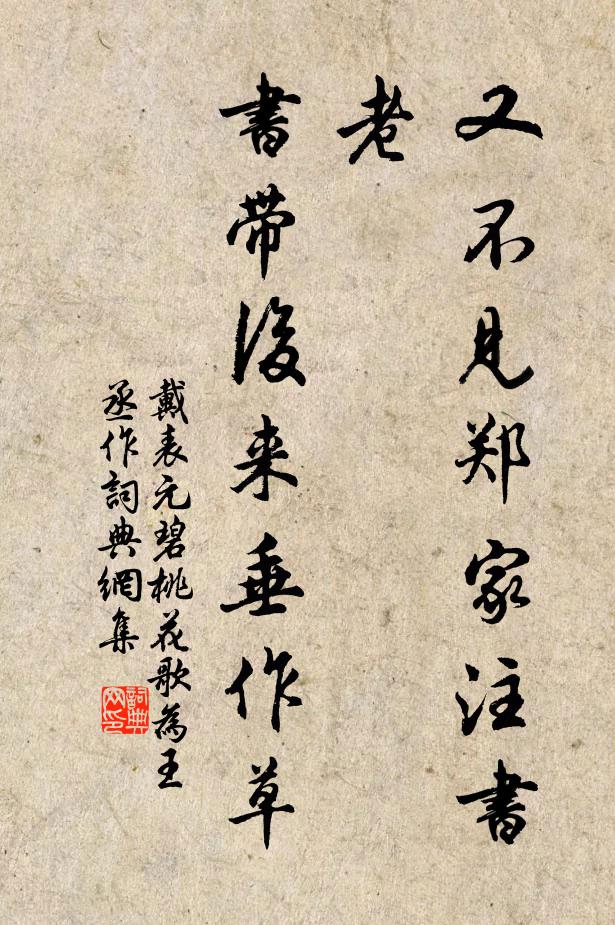 又不见郑家注書
老
書带後来垂作草
戴表元碧桃花歌為王
丞作詞典網集
詞典
网印